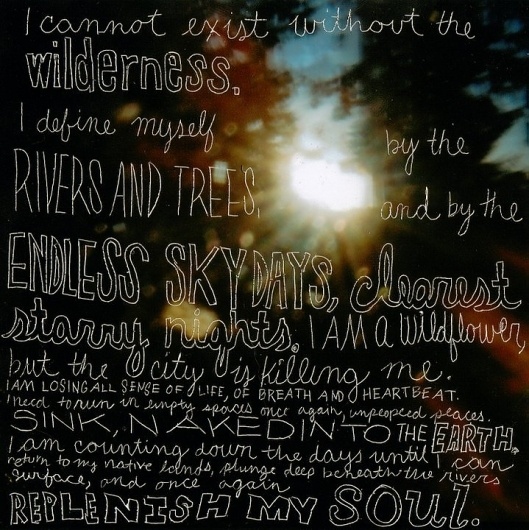 I cannot exist without the
wilderness.
I define myself by the
RIVERS AND TREES, and by the
ENDLESS SKY DAYS, clearest
starry nights. I AM A wildflower,
but the city is killing me.
I AM LOSING ALL SENSE OF LIFE, OF BREATH AND HEARTBEAT.
I need to run in empty spaces once again, unpeopled places.
SINK, NAKED INTO THE EARTH.
I am counting down the days until I can
return to my native lands, plunge deep beneath the rivers
surface, and once again
REPLENISH MY SOUL.